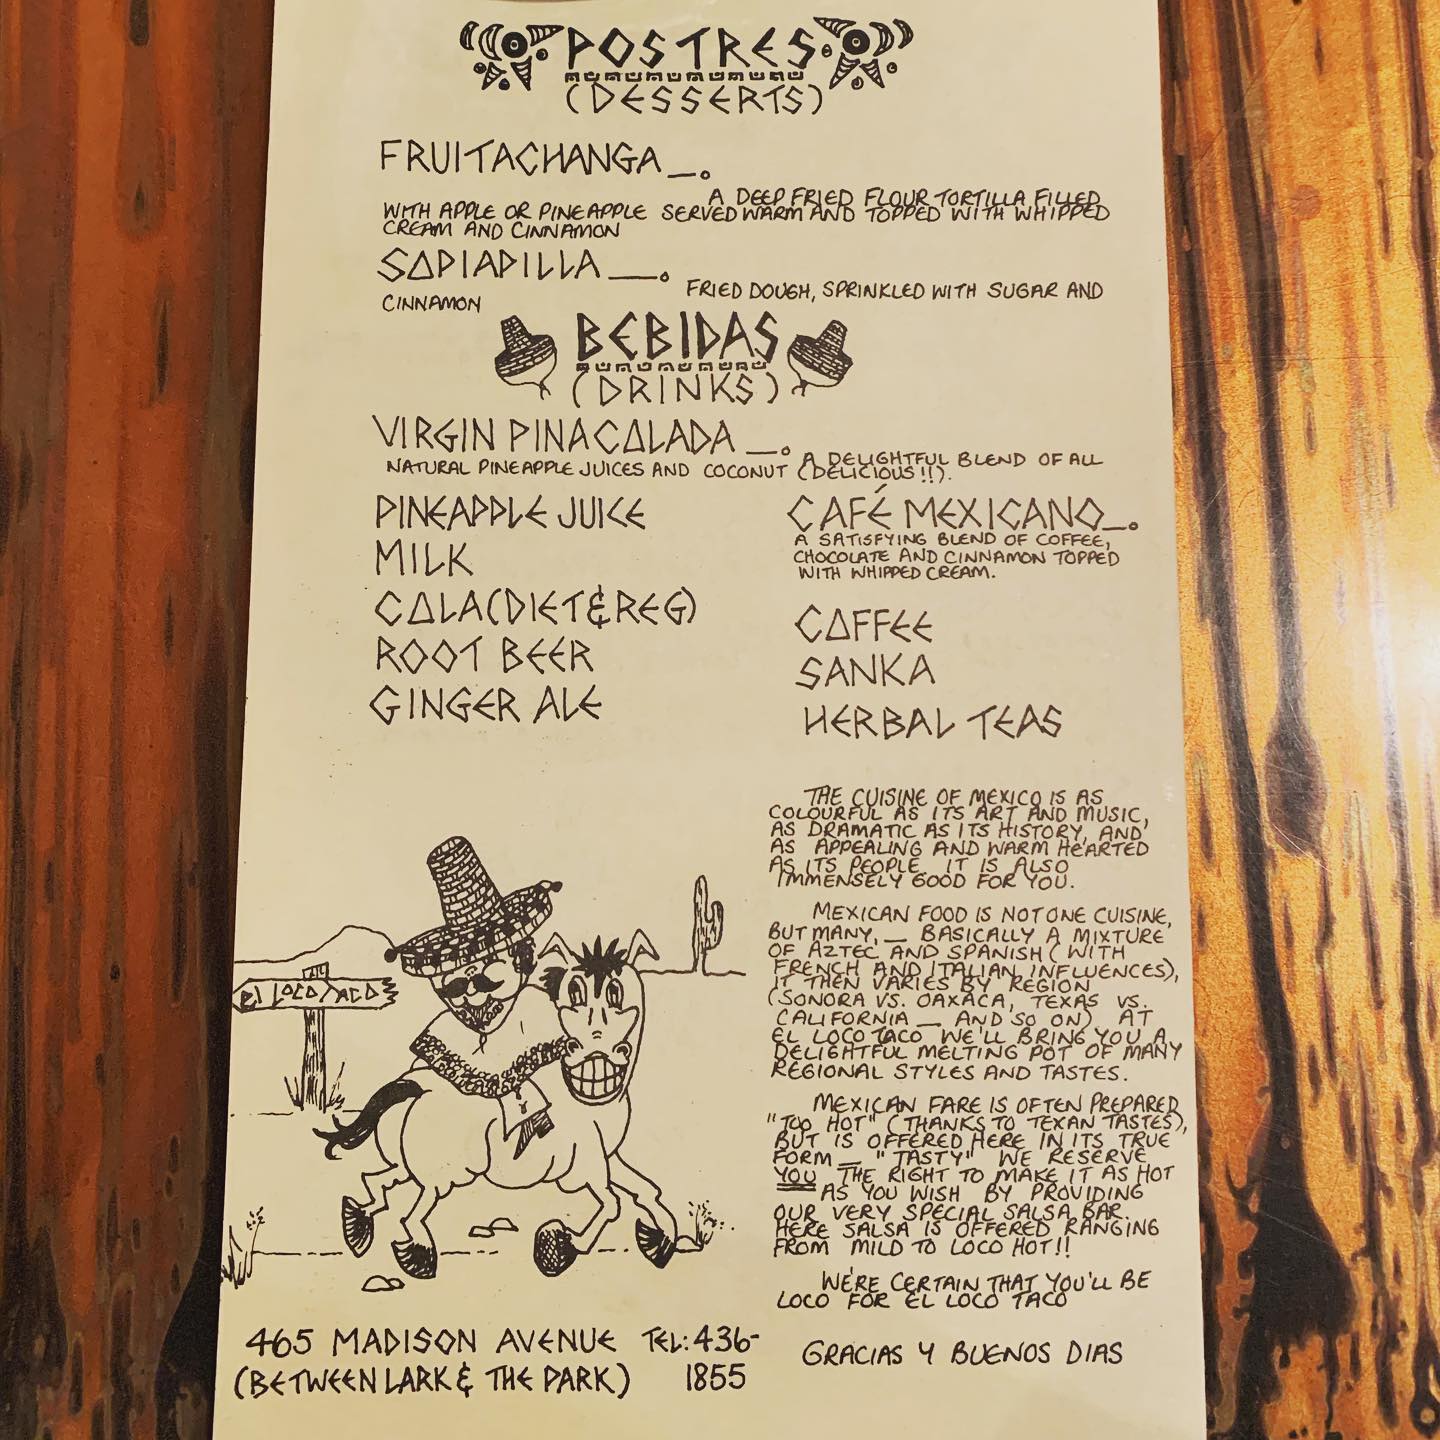 POSTRES
(DESSERTS)
FRUITACHANGA_.
A DEEP FRIED FLOUR TORTILLA FILLED
WITH APPLE OR PINEAPPLE SERVED WARM AND TOPPED WITH WHIPPED
CREAM AND CINNAMON
SOPIAPILLA_.
FRIED DOUGH, SPRINKLED WITH SUGAR AND
CINNAMON
BEBIDAS
(DRINKS)
VIRGIN PINACOLADA_.
A DELIGHTFUL BLEND OF ALL
NATURAL PINEAPPLE JUICES AND COCONUT (DELICIOUS!!).
PINEAPPLE JUICE
MILK
COLA(DIET&REG)
ROOT BEER
GINGER ALE
CAFÉ MEXICANO_.
A SATISFYING BLEND OF COFFEE,
CHOCOLATE AND CINNAMON TOPPED
WITH WHIPPED CREAM.
COFFEE
SANKA
HERBAL TEAS
THE CUISINE OF MEXICO IS AS
COLOURFUL AS ITS ART AND MUSIC,
AS DRAMATIC AS ITS HISTORY, AND
AS APPEALING AND WARM HEARTED
AS ITS PEOPLE IT IS ALSO
IMMENSELY GOOD FOR YOU.
MEXICAN FOOD IS NOT ONE CUISINE,
BUT MANY,_ BASICALLY A MIXTURE
OF AZTEC AND SPANISH (WITH
FRENCH AND ITALIAN INFLUENCES),
IT THEN VARIES BY REGION
(SONORA VS. OAXACA, TEXAS VS.
CALIFORNIA _ AND SO ON) AT
EL LOCO TACO WE'LL BRING YOU A
DELIGHTFUL MELTING POT OF MANY
REGIONAL STYLES AND TASTES.
MEXICAN FARE IS OFTEN PREPARED
"TOO HOT" (THANKS TO TEXAN TASTES),
BUT IS OFFERED HERE IN ITS TRUE
FORM _ "TASTY" WE RESERVE
YOU THE RIGHT TO MAKE IT AS HOT
AS YOU WISH BY PROVIDING
OUR VERY SPECIAL SALSA BAR.
HERE SALSA IS OFFERED RANGING
FROM MILD TO LOCO HOT!!
WE'RE CERTAIN THAT YOU'LL BE
LOCO FOR EL LOCO TACO
GRACIAS Y BUENOS DIAS
EL LOCO TACO
465 MADISON AVENUE TEL: 436-
(BETWEEN LARK & THE PARK) 1855